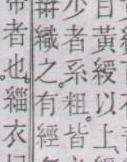 自黃綬以上
少者系粗皆
織之有經
帶者也緇衣